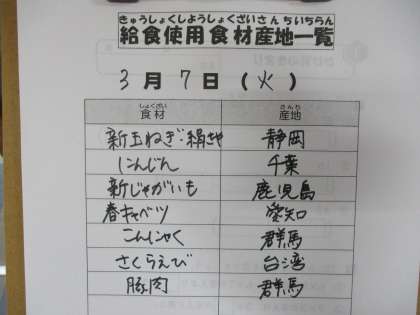 きゅうしょくしようしょくざいさんちいちらん
給食使用食材産地一覧
3月7日(火)
しょくざい さんち
食材 産地
新玉ねぎ・絹さや 静岡
にんじん 千葉
新じゃがいも 鹿児島
春キャベツ 愛知
こんにゃく 群馬
さくらえび 台湾
豚肉 群馬